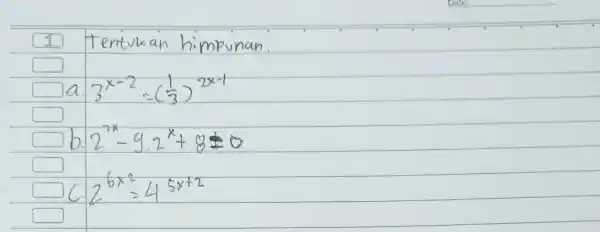 Date
1 Tentukan himpunan.
a. 3^{x-2} = (1/3)^{2x-1}
b. 2^{2x} - 9.2^x + 8 = 0
c. 2^{6x^2} = 4^{5x+2}